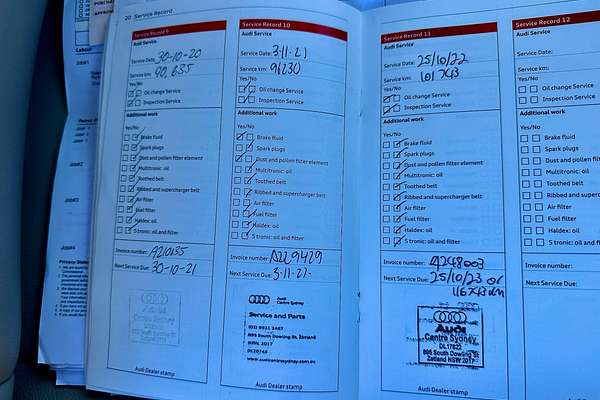 20 Service Record
Service Record 9
Audi Service
Service Date: 30-10-20
Service km: 90,835
Yes/No
Oil change Service
Inspection Service
Additional work
Yes/No
Brake fluid
Spark plugs
Dust and pollen filter element
Multitronic: oil
Toothed belt
Ribbed and supercharger belt
Air filter
Fuel filter
Haldex: oil
S tronic: oil and filter
Invoice number: A210135
Next Service Due: 30-10-21
Service Record 10
Audi Service
Service Date: 3-11-21
Service km: 91230
Yes/No
Oil change Service
Inspection Service
Additional work
Yes/No
Brake fluid
Spark plugs
Dust and pollen filter element
Multitronic: oil
Toothed belt
Ribbed and supercharger belt
Air filter
Fuel filter
Haldex: oil
S tronic: oil and filter
Invoice number: A229429
Next Service Due: 3-11-22
Audi
Centre Sydney
Service and Parts
895 South Dowling St, Zetland
NSW, 2017
www.audicentresydney.com.au
Audi Dealer stamp
Service Record 11
Audi Service
Service Date: 25/10/22
Service km: 101743
Yes/No
Oil change Service
Inspection Service
Additional work
Yes/No
Brake fluid
Spark plugs
Dust and pollen filter element
Multitronic: oil
Toothed belt
Ribbed and supercharger belt
Air filter
Fuel filter
Haldex: oil
S tronic: oil and filter
Invoice number: A248003
Next Service Due: 25/10/23 or
116743km
Audi
Centre Sydney
DL17822
895 South Dowling St
Zetland NSW 2017
Audi Dealer stamp
Service Record 12
Audi Service
Service Date:
Service km:
Yes/No
Oil change Service
Inspection Service
Additional work
Yes/No
Brake fluid
Spark plugs
Dust and pollen filter
Multitronic: oil
Toothed belt
Ribbed and supercharger
Air filter
Fuel filter
Haldex: oil
S tronic: oil and filter
Invoice number:
Next Service Due: